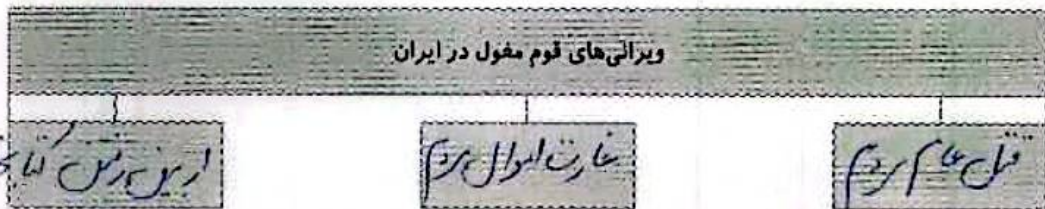 ویرانی‌های قوم مغول در ایران
قتل عام مردم
غارت اموال مردم
از بین رفتن کتا